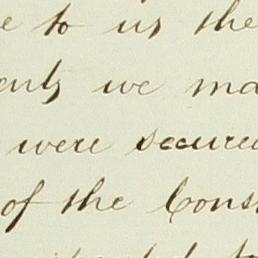 e to us the
ents we ma
were secure
of the Cons